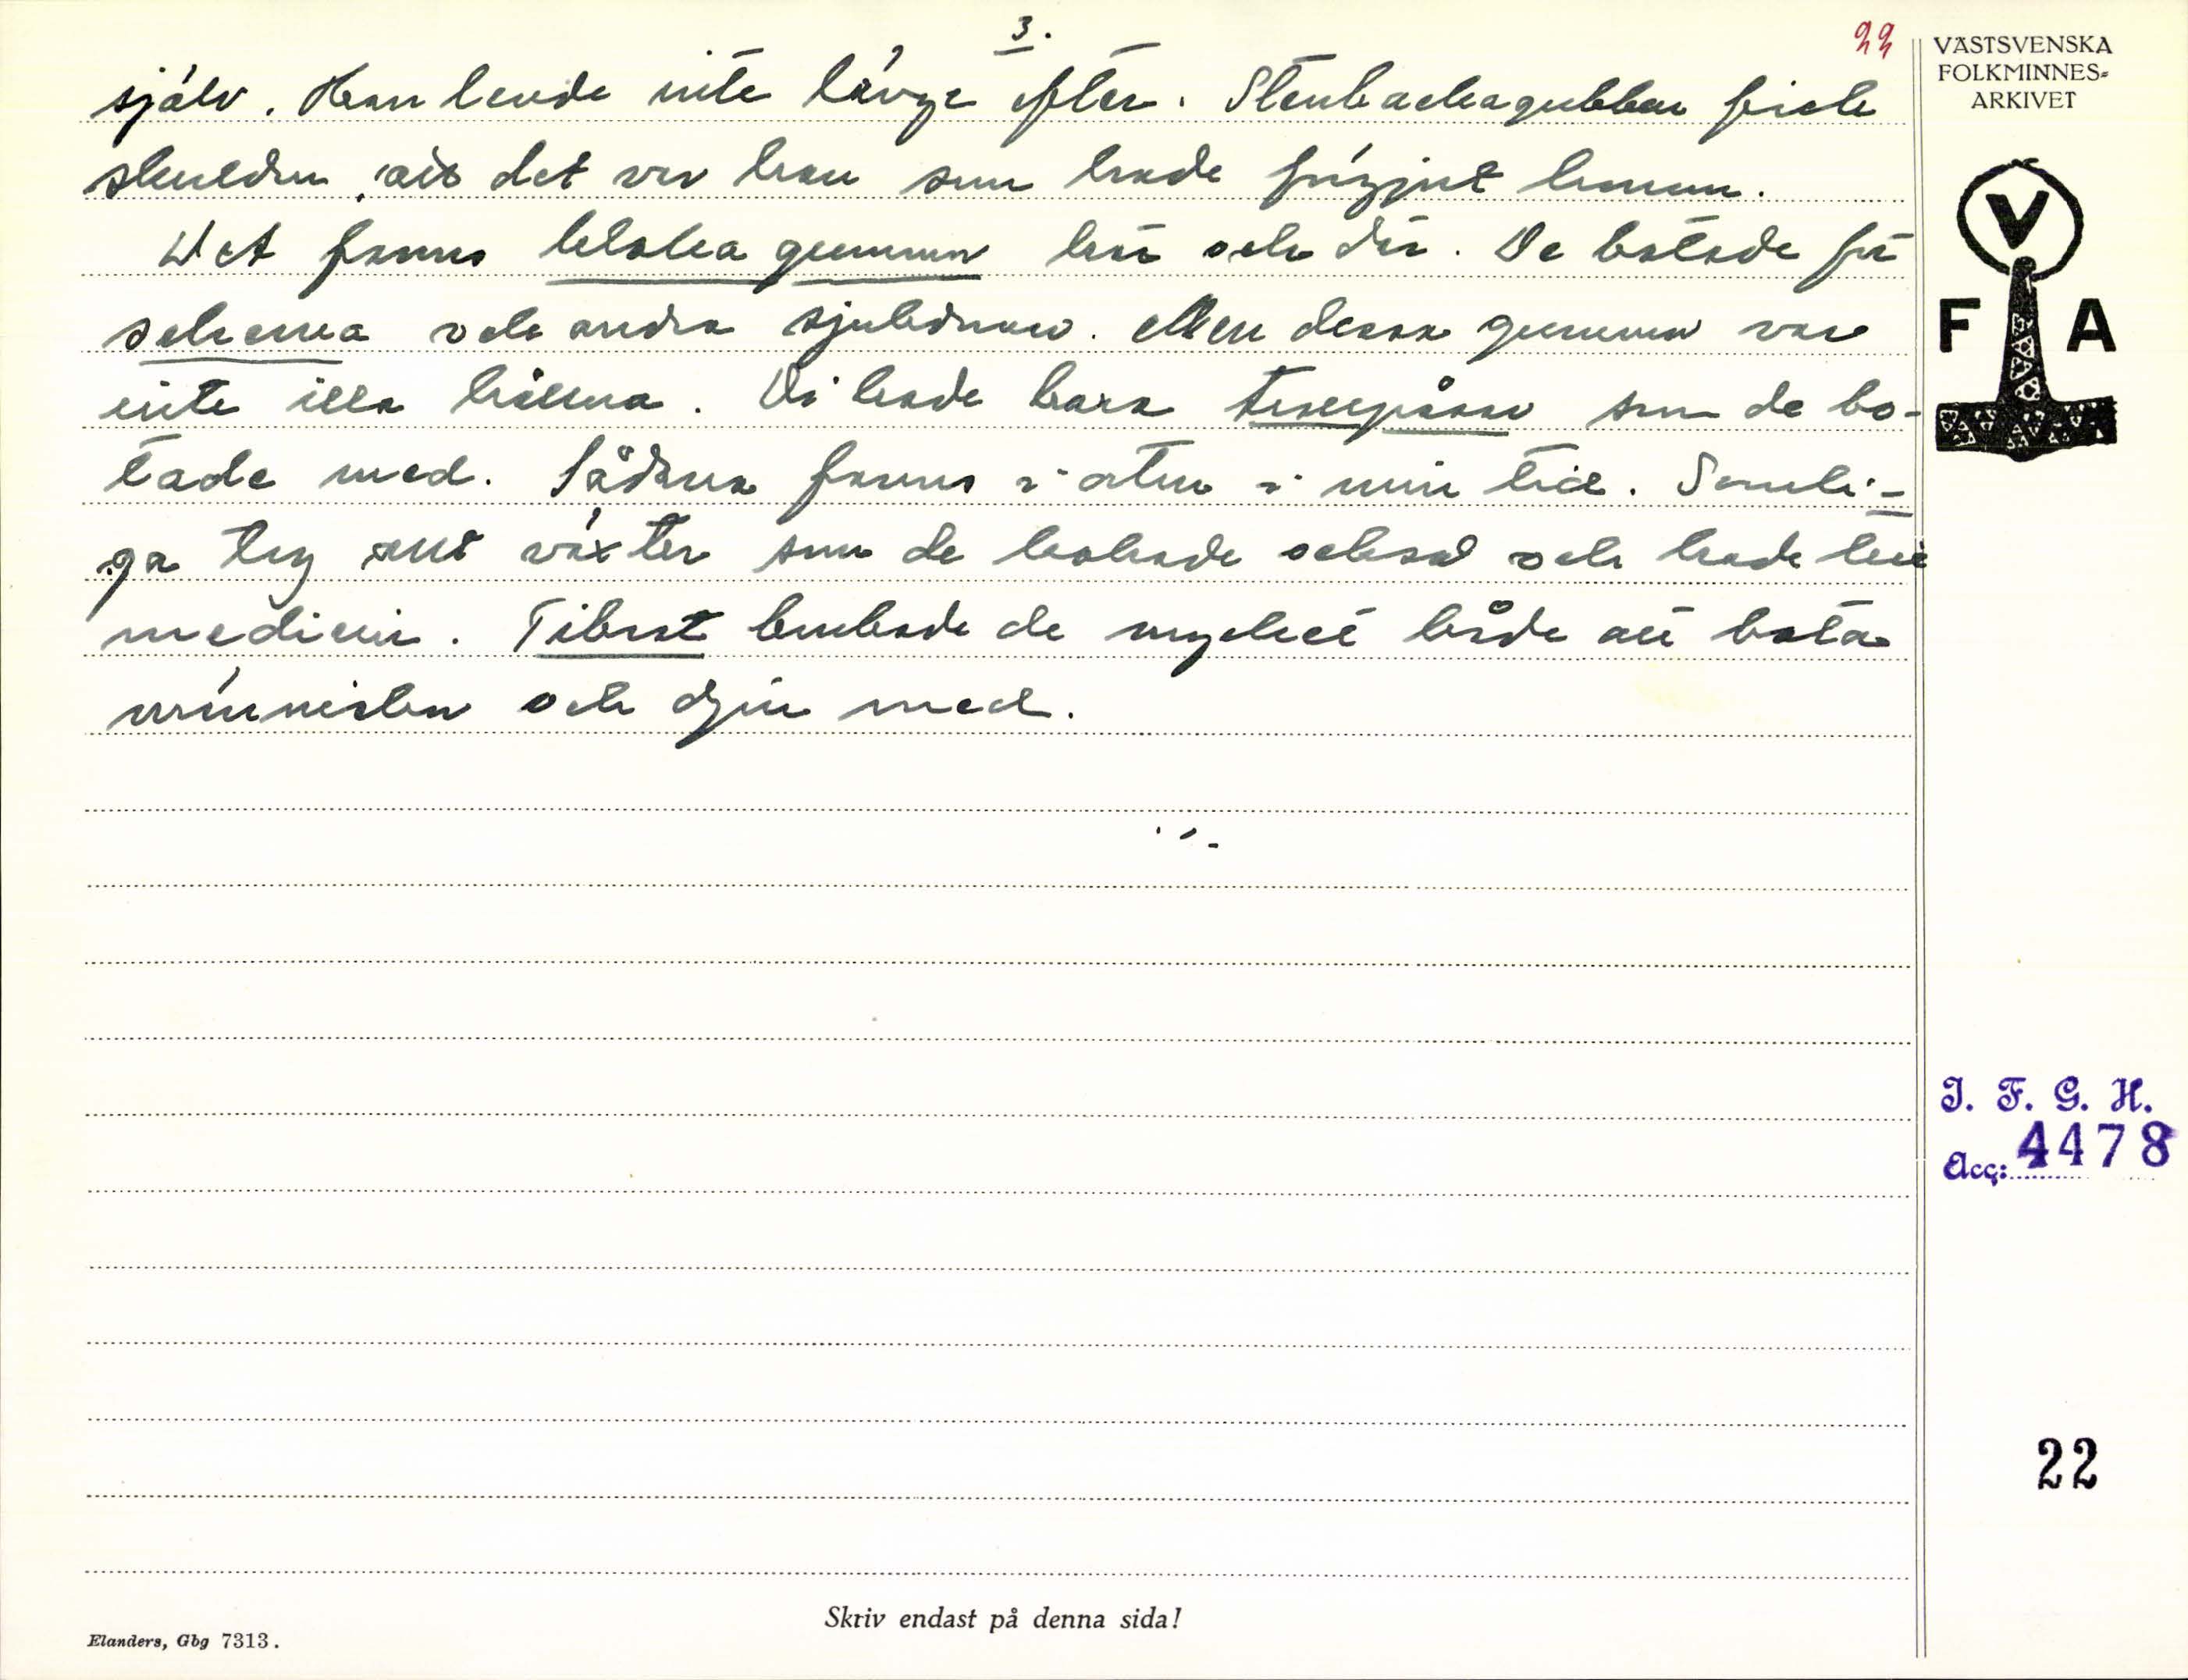 3.
22
själv. Han levde inte länge efter. Stenbackagubben fick
skulden, att det var han som hade förgjort honom.
Det fanns kloka gummor här och där. De botade för
skerva och andra sjukdomar. Men dessa gummor var
inte illa kända. Di hade bara som de bo-
tade med. Sådana fanns i orten i min tid. Somli-
ga tog ut växter som de kokade också och hade till
medicin. Tibast brukade de mycket både att bota
människor och djur med.
VÄSTSVENSKA
FOLKMINNES-
ARKIVET
V
F A
I. F. G. H.
Acc: 4478
22
Skriv endast på denna sida!
Elanders, Gbg 7313.